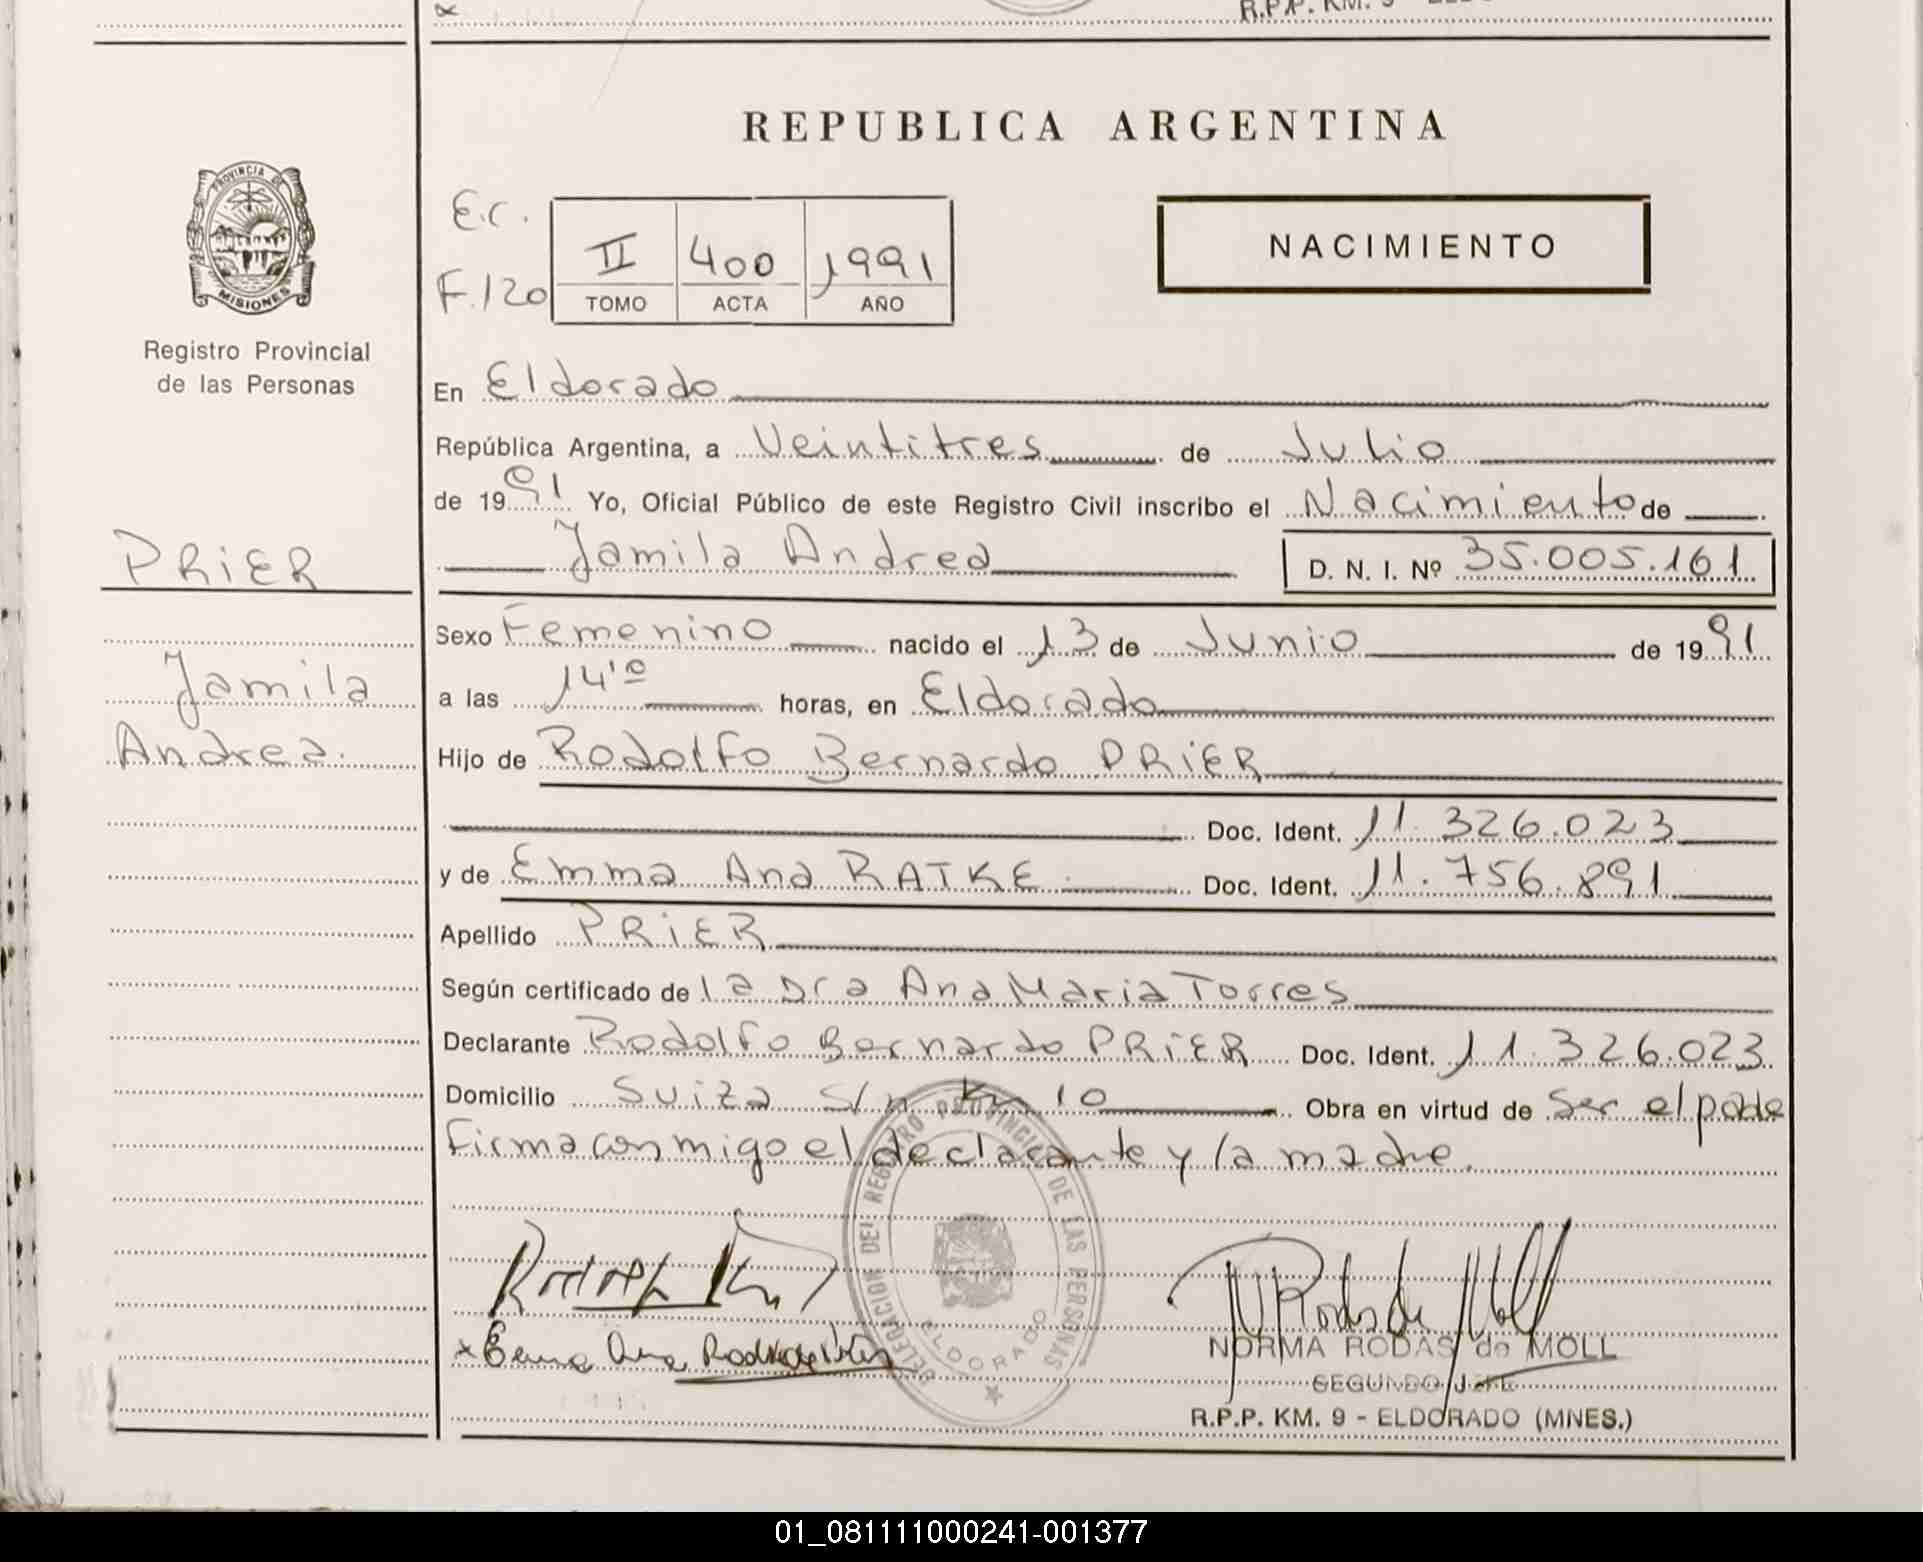 R.P.P. KM. 9 -
REPUBLICA ARGENTINA
PROVINCIA DE
MISIONES
Registro Provincial
de las Personas
E.C.
F.120
II 400 1991
TOMO ACTA AÑO
NACIMIENTO
En Eldorado
República Argentina, a Veintitres de Julio
de 1991 Yo, Oficial Público de este Registro Civil inscribo el Nacimiento de
PRiER
Jamila Andrea D. N. I. Nº 35.005.161
Sexo Femenino nacido el 13 de Junio de 1991
Jamila
a las 14'º horas, en Eldorado
Andrea.
Hijo de Rodolfo Bernardo PRiER
Doc. Ident. 11.326.023
y de Emma Ana RATKE Doc. Ident. 11.756.891
Apellido PRiER
Según certificado de la Dra Ana Maria Torres
Declarante Rodolfo Bernardo PRiER Doc. Ident. 11.326.023
Domicilio Suiza S/n Km 10 Obra en virtud de Ser el padre
Firma conmigo el declarante y la madre.
DELEGACION DEL REGISTRO PROVINCIAL DE LAS PERSONAS
ELDORADO
NORMA RODAS de MOLL
SEGUNDO JEFE
R.P.P. KM. 9 - ELDORADO (MNES.)
01_081111000241-001377